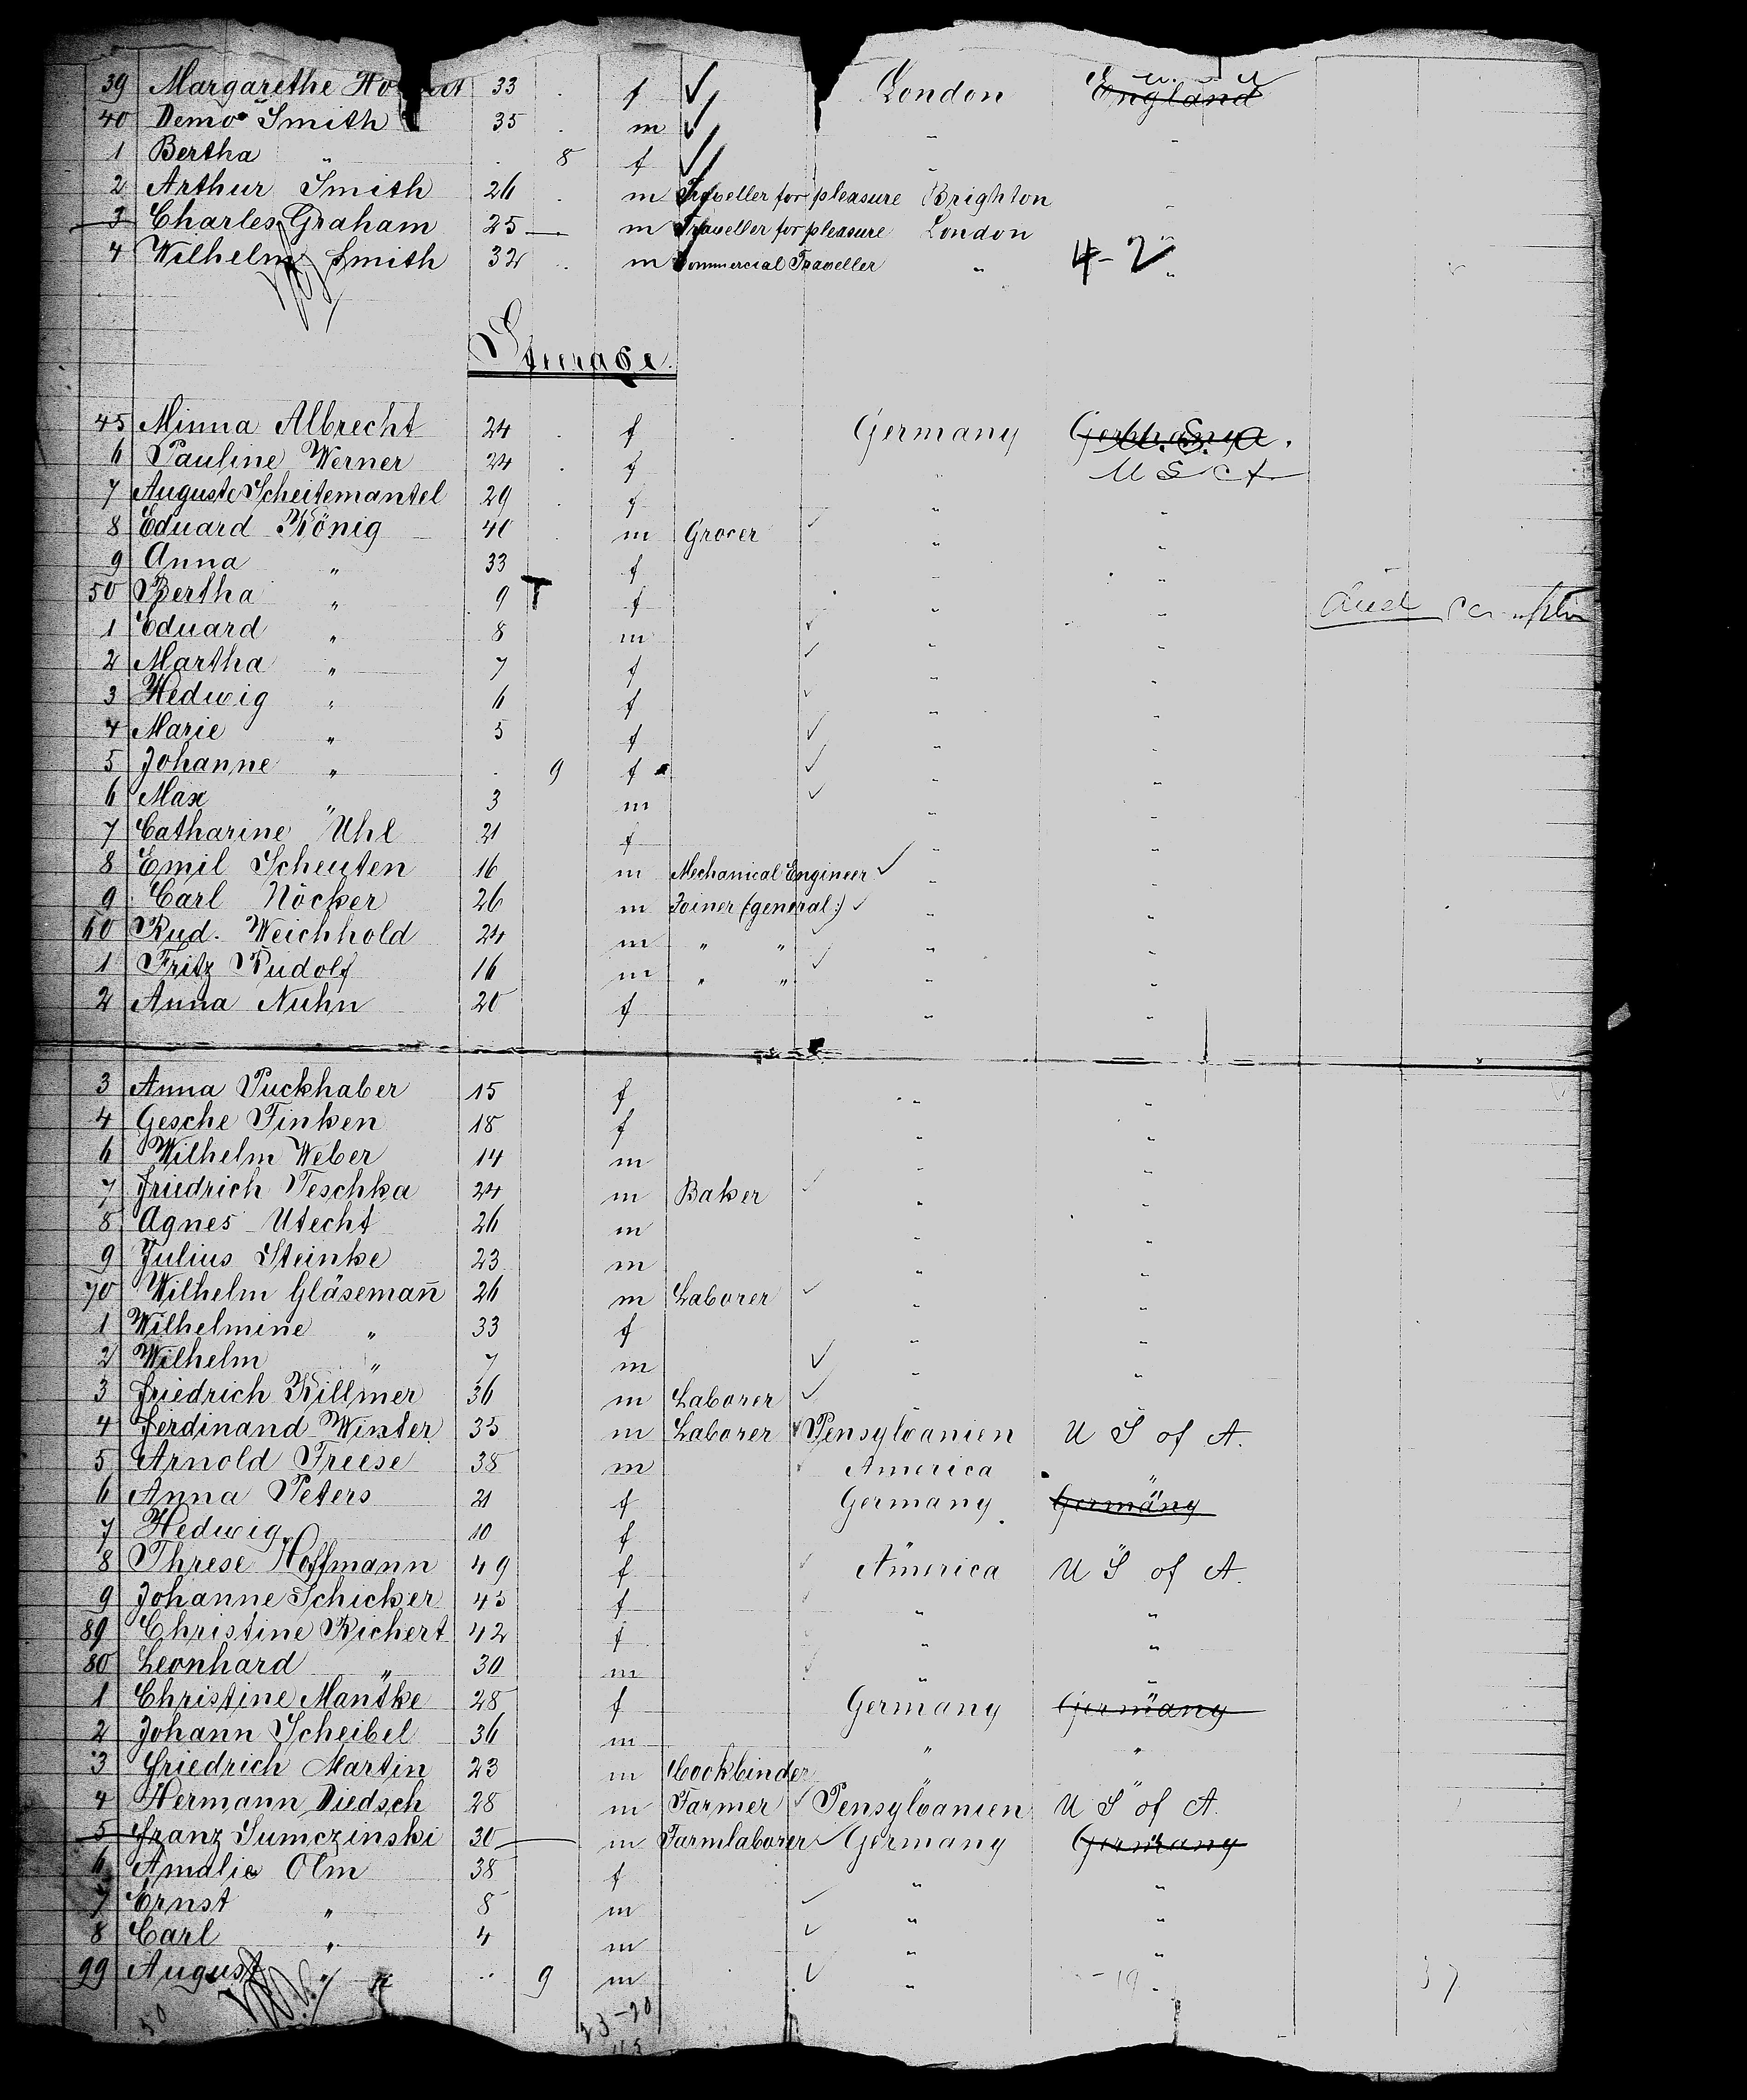 39 Margarethe 33 f ✓ London England U. S. A
40 Demo Smith 35 m ✓ "
1 Bertha " 8 f ✓ "
2 Arthur Smith 26 m Traveller for pleasure Brighton "
3 Charles Graham 25 — m Traveller for pleasure London "
4 Wilhelm Smith 32 m Commercial Traveller " 4-2 "
Steerage.
45 Minna Albrecht 24 f Germany Germany U.S.A.
6 Pauline Werner 24 f " U S A
7 Auguste Scheitemantel 29 f " "
8 Eduard König 40 m Grocer ✓ " "
9 Anna " 33 f " "
50 Bertha " 9 T f " " died
1 Eduard " 8 m ✓ " "
2 Martha " 7 f ✓ " "
3 Hedwig " 6 f ✓ " "
4 Marie " 5 f ✓ " "
5 Johanne " 9 f ✓ " "
6 Max " 3 m ✓ " "
7 Catharine Uhl 21 f " "
8 Emil Scheuten 16 m Mechanical Engineer ✓ " "
9 Carl Nöcker 26 m Joiner (general:) ✓ " "
60 Rud. Weichhold 24 m " " ✓ " "
1 Fritz Rudolf 16 m " " ✓ " "
2 Anna Nuhn 20 f " "
3 Anna Puckhaber 15 f " "
4 Gesche Finken 18 f " "
6 Wilhelm Weber 14 m " "
7 Friedrich Teschka 24 m Baker ✓ " "
8 Agnes Utecht 26 m " "
9 Julius Steinke 23 m " "
70 Wilhelm Gläsemañ 26 m Laborer ✓ " "
1 Wilhelmine " 33 f " "
2 Wilhelm " 7 m ✓ " "
3 Friedrich Killmer 36 m Laborer ✓ " "
4 Ferdinand Winter 35 m Laborer ✓ Pensylvanien U S of A.
5 Arnold Freese 38 m ✓ America "
6 Anna Peters 21 f Germany Germany
7 Hedwig " 10 f " "
8 Threse Hoffmann 49 f ✓ America U S of A.
9 Johanne Schicker 45 f ✓ " "
89 Christine Richert 42 f " "
80 Leonhard " 30 m ✓ " "
1 Christine Mantke 28 f Germany Germany
2 Johann Scheibel 36 m " "
3 Friedrich Martin 23 m Bookbinder " "
4 Hermann Diedsch 28 m Farmer ✓ Pensylvanien U S of A.
5 Franz Sumczinski 30 — m Farmlaborer ✓ Germany Germany
6 Amalie Olm 38 f " "
7 Ernst " 8 m ✓ " "
8 Carl " 4 m ✓ " "
99 August " 9 m ✓ " - 19 - 37
50 23-20